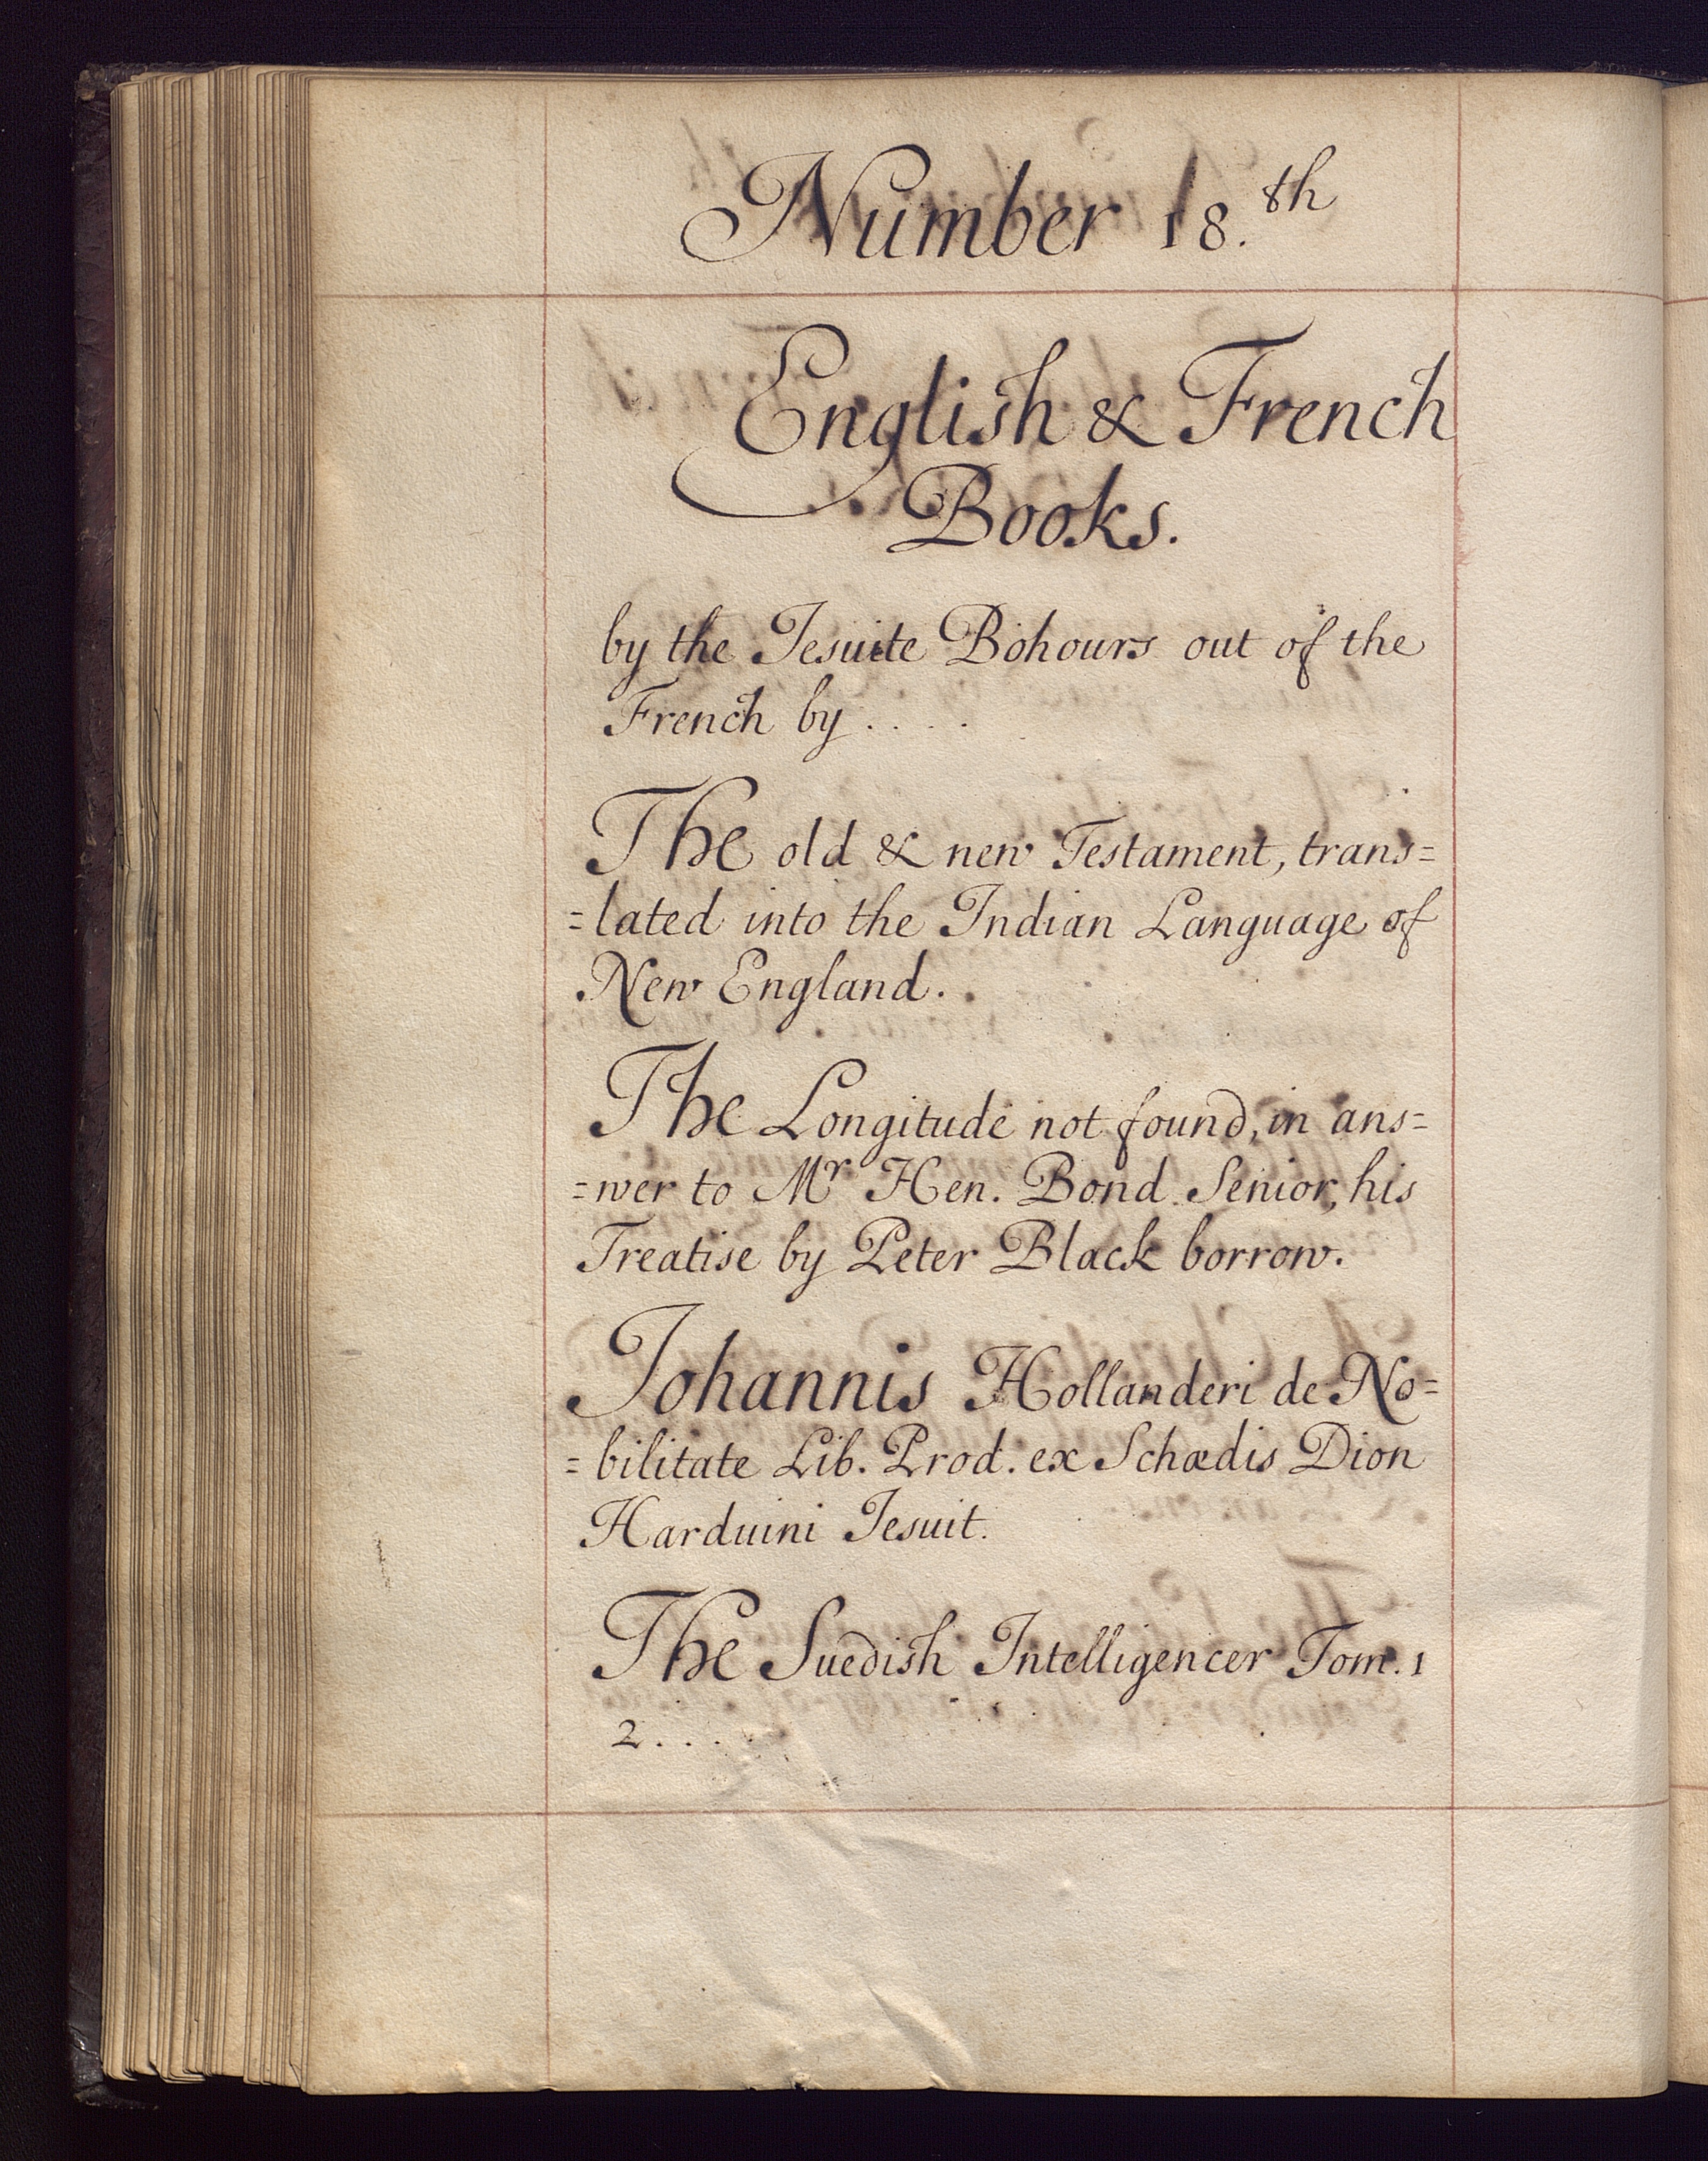 Number 18.th
English & French
Books.
by the Jesuite Bohours out of the
French by . . . .
The old & new Testament, trans=
=lated into the Indian Language of
New England.
The Longitude not found, in ans=
=wer to Mr Hen. Bond Senior, his
Treatise by Peter Black borrow.
Johannis Hollanderi de No=
=bilitate Lib. Prod. ex Schœdis Dion
Harduini Jesuit.
The Suedish Intelligencer Tom. 1
2 . . . .